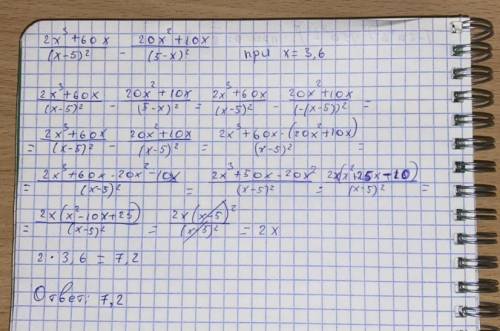 (2x³+60x)/(x-5)² - (20x²+10x)/(5-x)² при x=3,6
(2x³+60x)/(x-5)² - (20x²+10x)/(5-x)² = (2x³+60x)/(x-5)² - (20x²+10x)/(-(x-5))² =
= (2x³+60x)/(x-5)² - (20x²+10x)/(x-5)² = (2x³+60x-(20x²+10x))/(x-5)² =
= (2x³+60x-20x²-10x)/(x-5)² = (2x³+50x-20x²)/(x-5)² = (2x(x²+25x-10))/(x-5)² =
= (2x(x²-10x+25))/(x-5)² = (2x(x-5)²)/(x-5)² = 2x
2·3,6=7,2
Ответ: 7,2